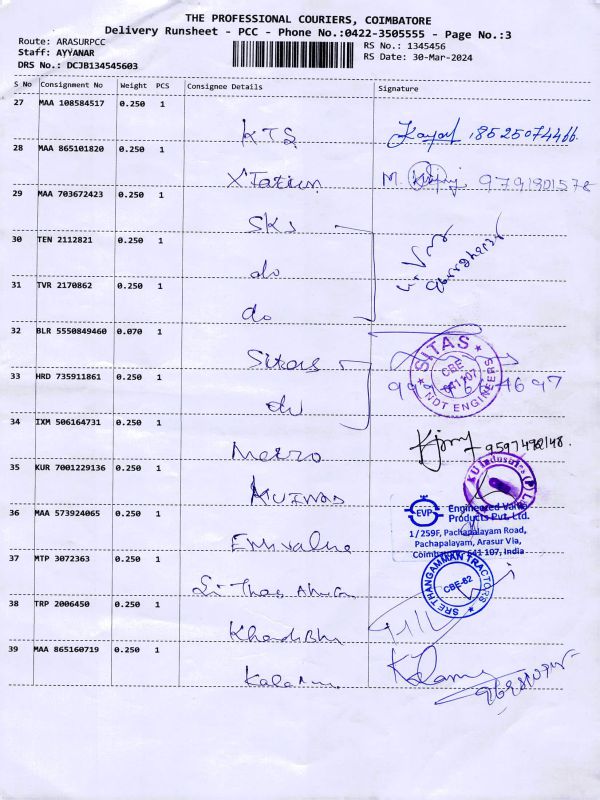 THE PROFESSIONAL COURIERS, COIMBATORE
Delivery Runsheet - PCC - Phone No.:0422-3505555 - Page No.:3
Route: ARASURPCC
RS No.: 1345456
Staff: AYYANAR
RS Date: 30-Mar-2024
DRS No.: DCJB134545603
S No Consignment No Weight PCS Consignee Details Signature
27 MAA 108584517 0.250 1
KTS 8525074466
28 MAA 865101820 0.250 1
M. 9791901578
29 MAA 703672423 0.250 1
SKS
30 TEN 2112821 0.250 1
do
31 TVR 2170862 0.250 1
do
32 BLR 5550849460 0.070 1
Sitas
SITAS
CBE
641 107
NDT ENGINEERS
33 HRD 735911861 0.250 1
do
34 IXM 506164731 0.250 1
Metro
35 KUR 7001229136 0.250 1
KU Industries (P) L
36 MAA 573924065 0.250 1
EVP
Engineered Valve
Products Pvt. Ltd.
1/259F, Pachapalayam Road,
Pachapalayam, Arasur Via,
Coimbatore 641 107, India
37 MTP 3072363 0.250 1
SRE THANGAMMAN TRACTORS
CBE-62
38 TRP 2006450 0.250 1
39 MAA 865160719 0.250 1